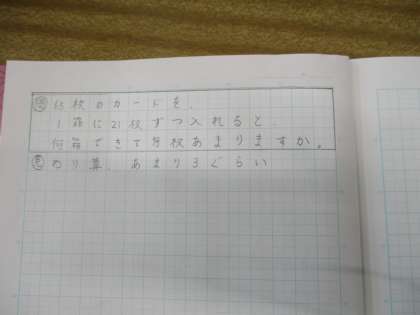 問 65枚のカードを、
1箱に21枚ずつ入れると、
何箱できて何枚あまりますか。
見 わり算、あまり3ぐらい